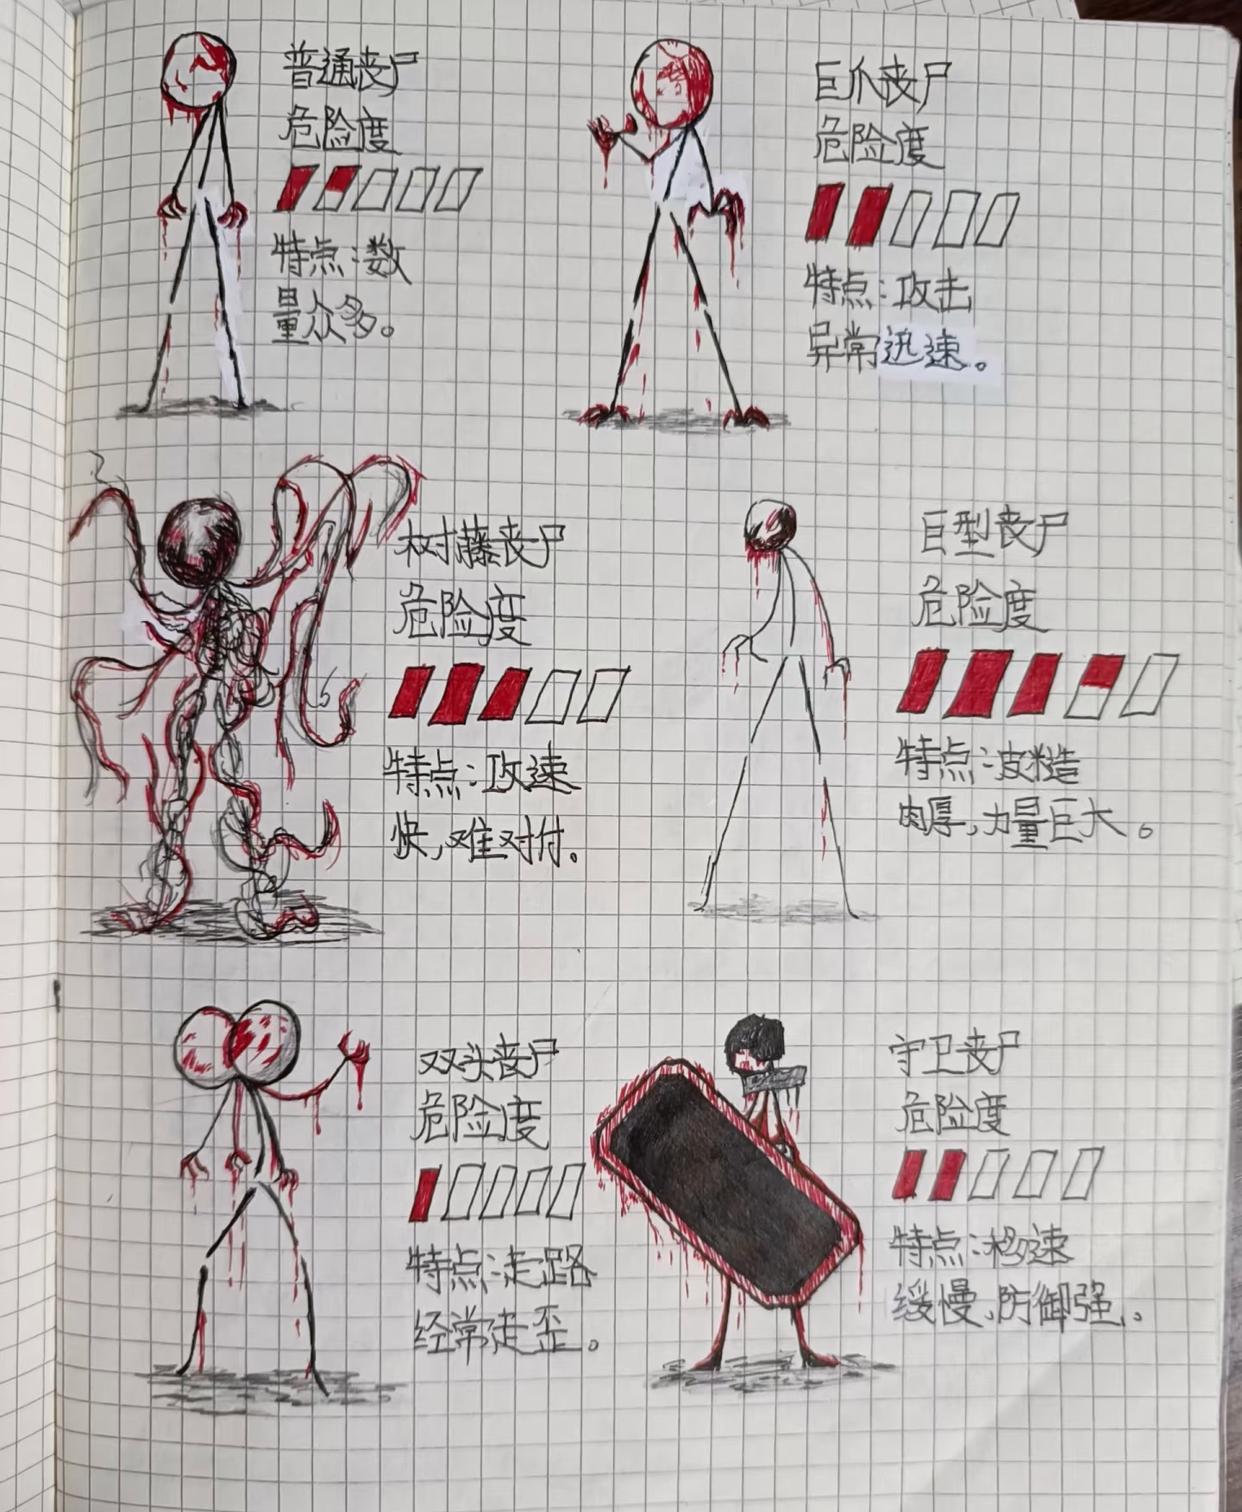 普通丧尸
危险度
特点:数
量众多。
巨爪丧尸
危险度
特点:攻击
异常迅速。
树藤丧尸
危险度
特点:攻速
快,难对付。
巨型丧尸
危险度
特点:皮糙
肉厚,力量巨大。
双头丧尸
危险度
特点:走路
经常走歪。
守卫丧尸
危险度
特点:移速
缓慢,防御强。